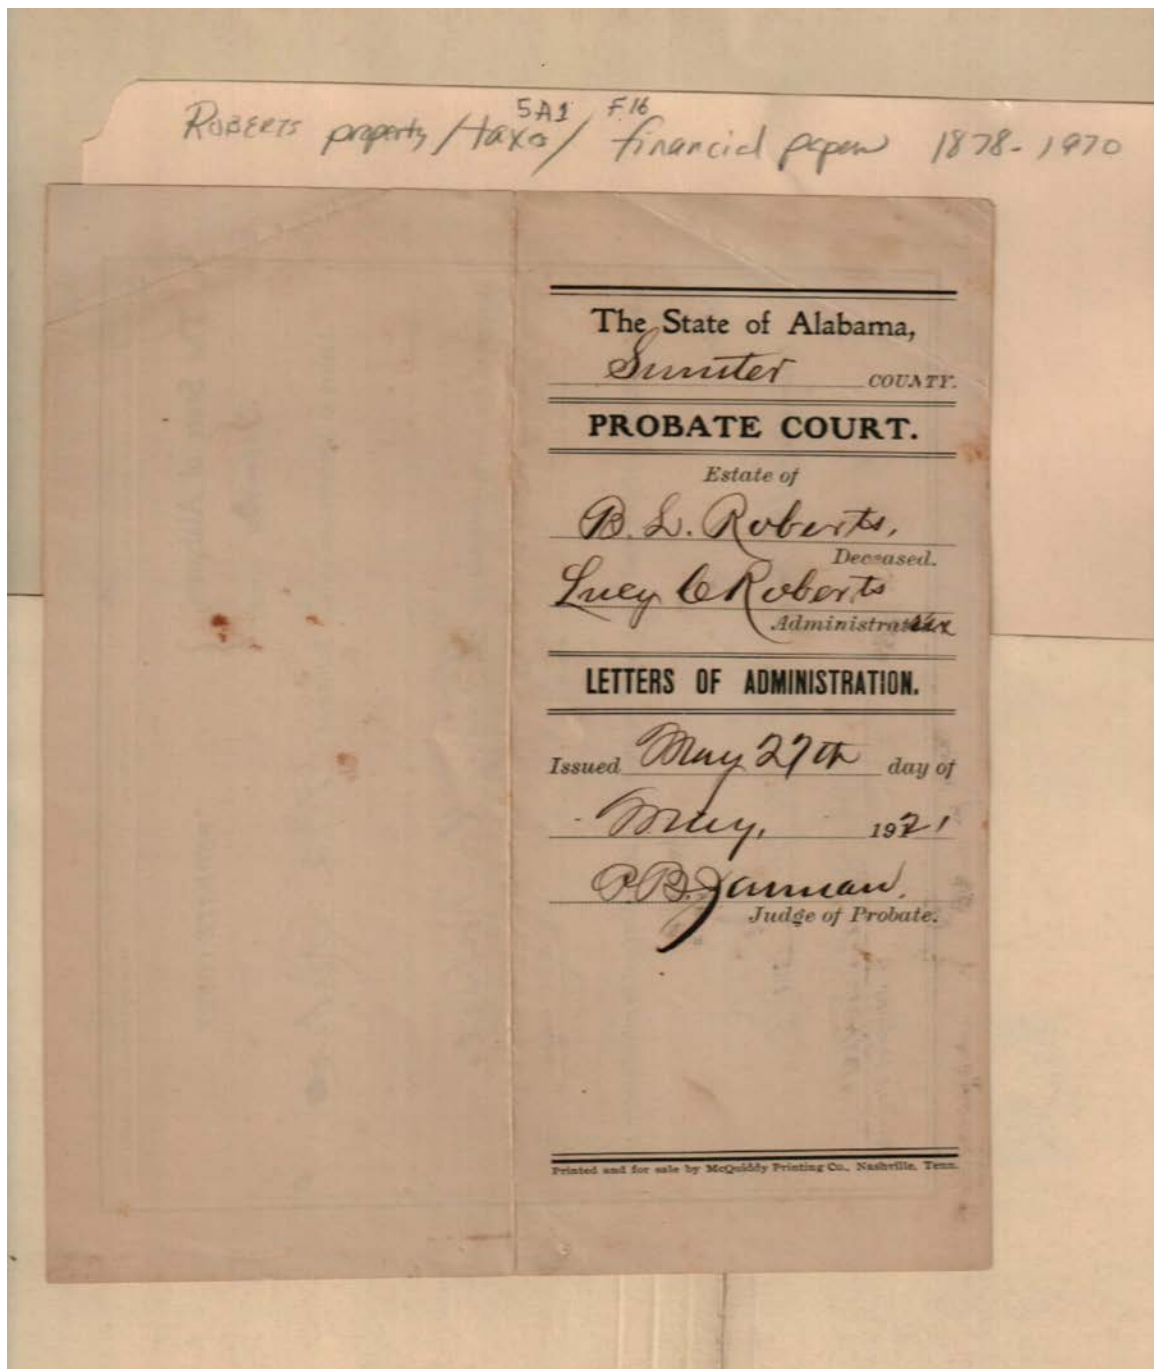 5A1 F.16
ROBERTS property/taxes/ financial papers 1878-1970
The State of Alabama,
Sumter COUNTY.
PROBATE COURT.
Estate of
B. L. Roberts,
Deceased.
Lucy C Roberts
Administratrix
LETTERS OF ADMINISTRATION.
Issued May 27th day of
May, 1921
P. B. Jarman.
Judge of Probate.
Printed and for sale by McQuiddy Printing Co., Nashville, Tenn.